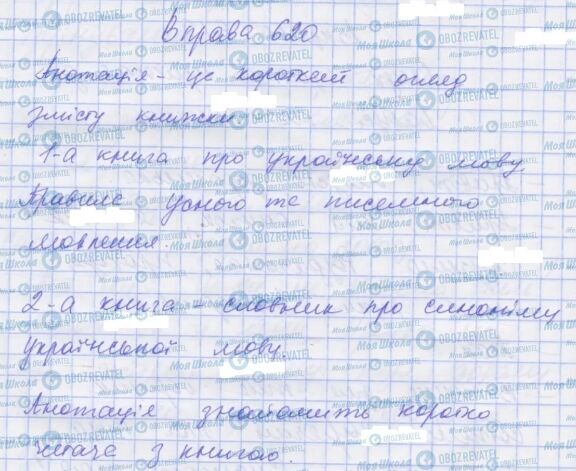 Вправа 620
Анотація - це короткий огляд
змісту книжки
1-а книга про українську мову.
Правила усного та писемного
мовлення.
2-а книга - словник про синоніми
української мови.
Анотація знайомить коротко
читача з книгою.